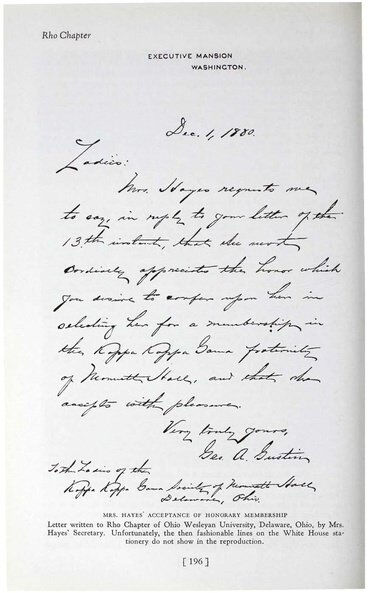 Rho Chapter
EXECUTIVE MANSION
WASHINGTON.
Dec. 1, 1880.
Ladies:
Mrs. Hayes requests me
to say, in reply to your letter of the
13.th instant, that she most
cordially appreciates the honor which
you desire to confer upon her in
selecting her for a membership in
the Kappa Kappa Gama fraternity
of Monnett Hall, and that she
accepts with pleasure.
Very truly yours,
Geo. A. Gustin
To the Ladies of the
Kappa Kappa Gama Society of Monnett Hall
Delaware, Ohio.
MRS. HAYES' ACCEPTANCE OF HONORARY MEMBERSHIP
Letter written to Rho Chapter of Ohio Wesleyan University, Delaware, Ohio, by Mrs.
Hayes' Secretary. Unfortunately, the then fashionable lines on the White House sta-
tionery do not show in the reproduction.
[ 196 ]